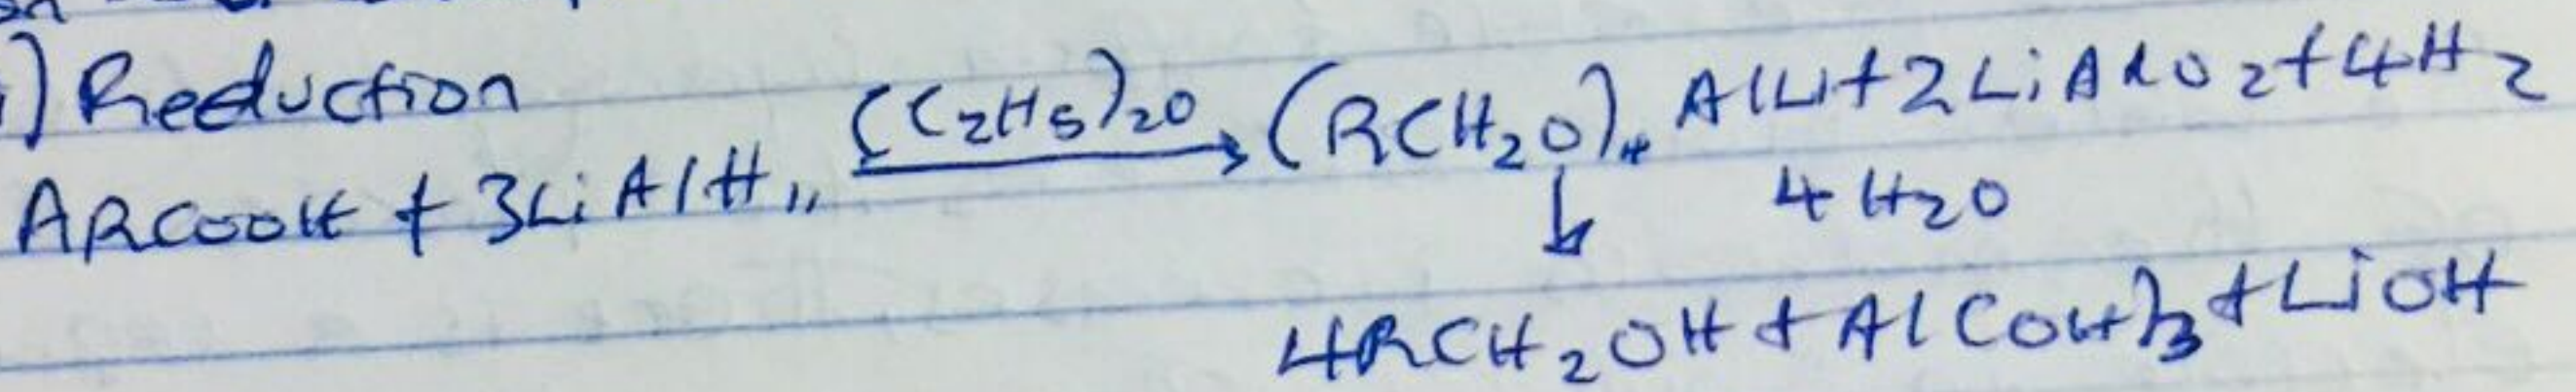 i) Reeduction
ARCOOH + 3LiAlH,, (C2H5)2O → (RCH2O)4 AlLi + 2LiAlO2 + 4H2
↓ 4H2O
4RCH2OH + Al(OH)3 + LiOH